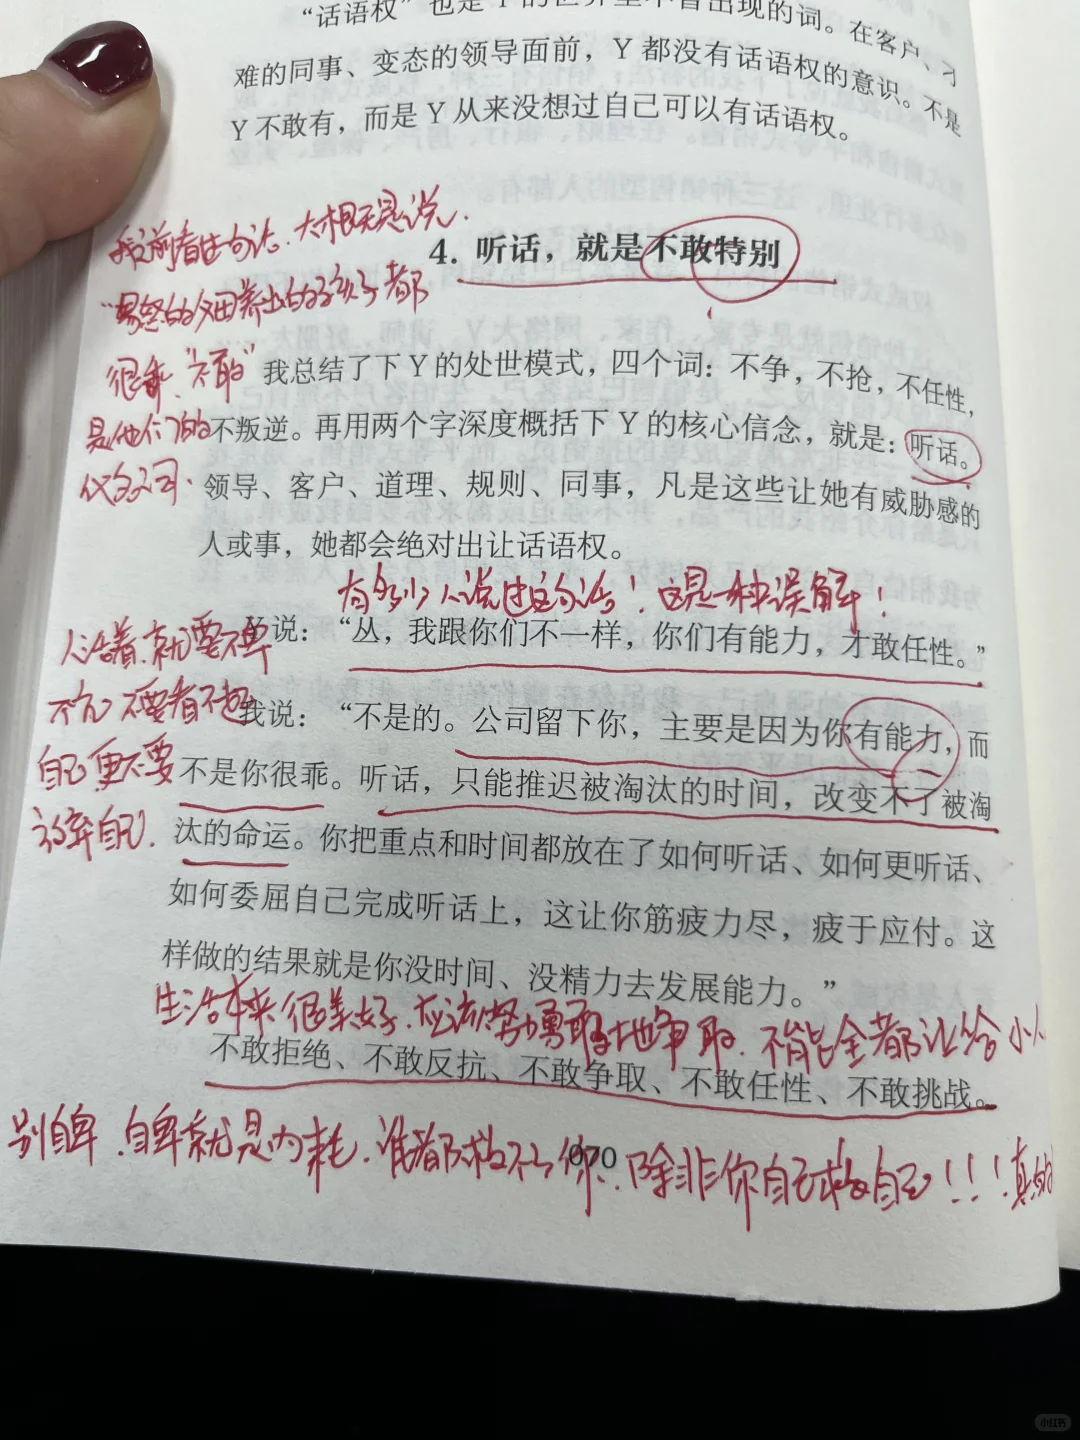 “话语权”也是Y的世界里不曾出现的词。在客户、刁
难的同事、变态的领导面前，Y都没有话语权的意识。不是
Y不敢有，而是Y从来没想过自己可以有话语权。
我前看过一句话.大概就是说
4. 听话，就是不敢特别
“
的父母养出的孩子都
很乖.“不敢”
我总结了下Y的处世模式，四个词：不争，不抢，不任性，
是他们的
不叛逆。再用两个字深度概括下Y的核心信念，就是：听话。
代名词.
领导、客户、道理、规则、同事，凡是这些让她有威胁感的
人或事，她都会绝对出让话语权。
有多少人说过这句话！这是一种误解！
人活着.就要不卑
Y说：“丛，我跟你们不一样，你们有能力，才敢任性。”
不亢.不要看不起
我说：“不是的。公司留下你，主要是因为你有能力，而
自己.更不要
不是你很乖。听话，只能推迟被淘汰的时间，改变不了被淘
放弃自己.
汰的命运。你把重点和时间都放在了如何听话、如何更听话、
如何委屈自己完成听话上，这让你筋疲力尽，疲于应付。这
样做的结果就是你没时间、没精力去发展能力。”
生活本来很美好.应该努力勇敢地争取.不能全都让给小人
不敢拒绝、不敢反抗、不敢争取、不敢任性、不敢挑战。
别自卑.自卑就是内耗.谁都救不了你.除非你自己救自己！！！真的
070
小红书